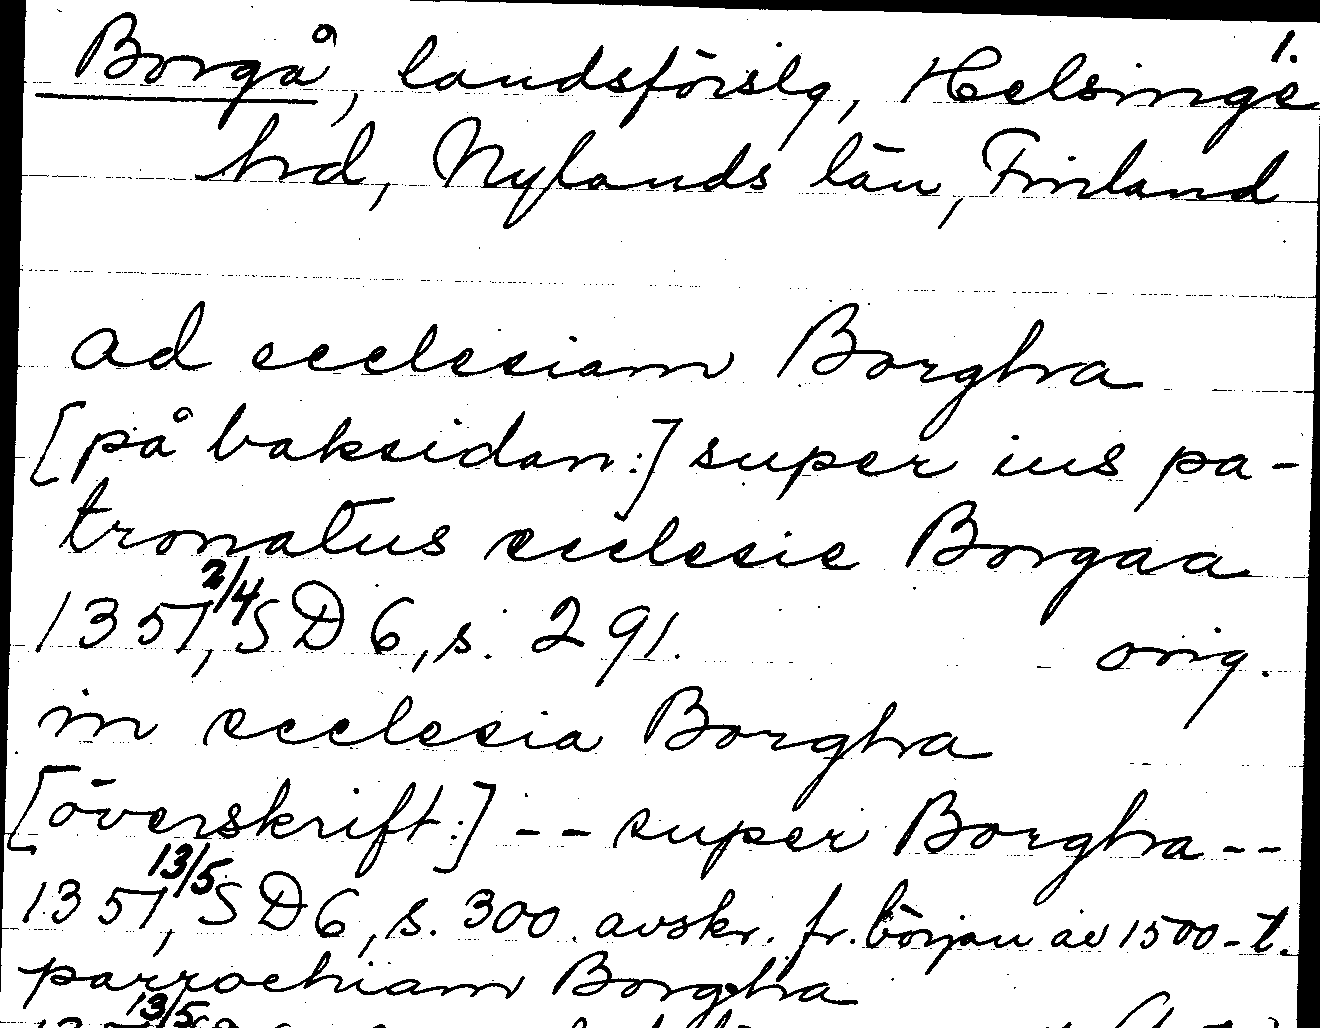 1.
Borgå, landsförslg, Helsinge
hrd, Nylands län, Finland
ad ecclesiam Borgha
[på baksidan:] super ius pa-
tronatus ecclesie Borgaa
1357 2/4, SD 6, s. 291. orig.
in ecclesia Borgha
[överskrift:] -- super Borgha --
1357 13/5, SD 6, s. 300. avskr. fr. början av 1500-t.
parrochiam Borgha
13/5